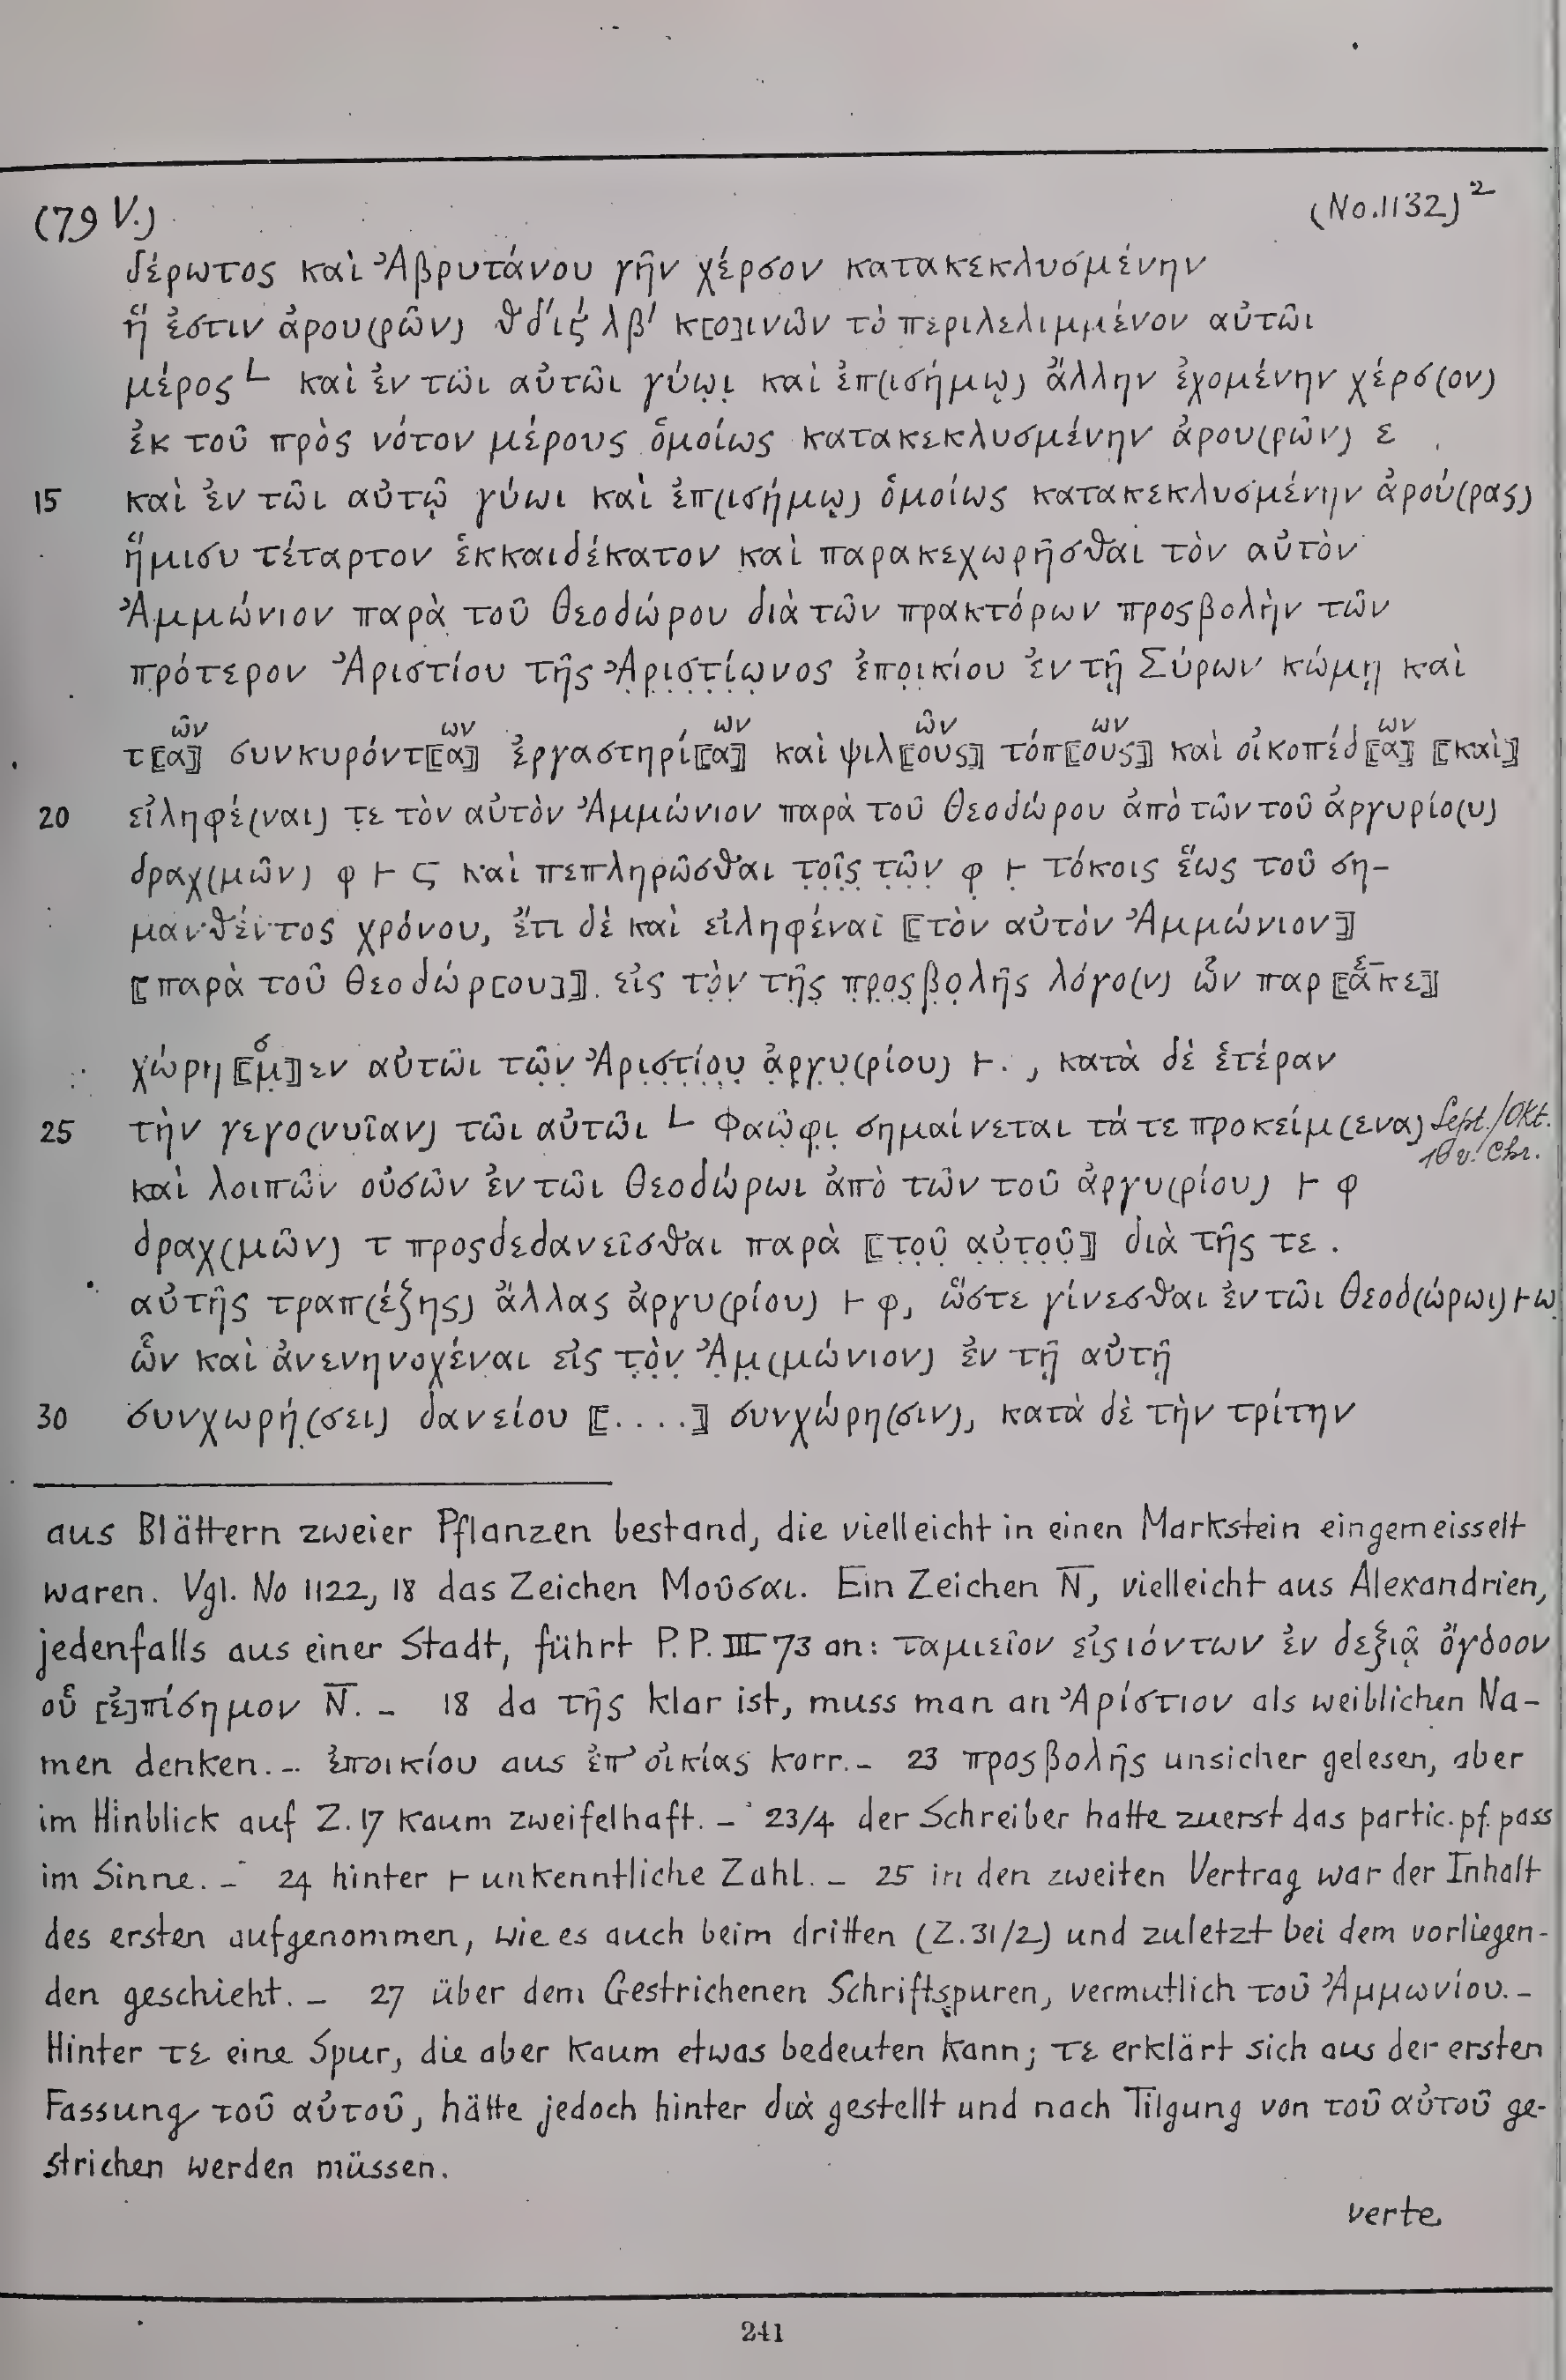 (79 V.) (No.1132)²
δέρωτος καὶ Ἀβρυτάνου γῆν χέρσον κατακεκλυσμένην
ἥ ἐστιν ἀρου(ρῶν) θ δ´ις´ λβ´ κ[ο]ινῶν τὸ περιλελιμμένον αὐτῶι
μέρος └ καὶ ἐν τῶι αὐτῶι γύῳι καὶ ἐπ(ισήμῳ) ἄλλην ἐχομένην χέρσ(ον)
ἐκ τοῦ πρὸς νότον μέρους ὁμοίως κατακεκλυσμένην ἀρου(ρῶν) ε
15 καὶ ἐν τῶι αὐτῷ γύωι καὶ ἐπ(ισήμῳ) ὁμοίως κατακεκλυσμένην ἀρού(ρας)
ἥμισυ τέταρτον ἑκκαιδέκατον καὶ παρακεχωρῆσθαι τὸν αὐτὸν
Ἀμμώνιον παρὰ τοῦ Θεοδώρου διὰ τῶν πρακτόρων προσβολὴν τῶν
πρότερον Ἀριστίου τῆς Ἀ̣ρ̣ι̣σ̣τ̣ί̣ω̣νος ἐπο̣ικίου ἐν τῇ Σύρων κώμῃ καὶ
ῶν ων ων ῶν ων ων
τ⟦α⟧ συνκυρόντ⟦α⟧ ἐργαστηρί⟦α⟧ καὶ ψιλ⟦ους⟧ τόπ⟦ους⟧ καὶ οἰκοπέδ⟦α⟧ ⟦καὶ⟧
20 εἰληφέ(ναι) τ̣ε τὸν αὐτὸν Ἀμμώνιον παρὰ τοῦ Θεοδώρου ἀπὸ τῶν τοῦ ἀργυρίο(υ)
δραχ(μῶν) φ ⊢ Ϛ καὶ πεπληρῶσθαι τ̣ο̣ῖ̣ς̣ τ̣ῶ̣ν̣ φ̣ ⊢̣ τόκοις ἕως τοῦ ση-
μανθέντος χρόνου, ἔτι δὲ καὶ εἰληφέναι ⟦τὸν αὐτὸν Ἀμμώνιον⟧
⟦παρὰ τοῦ Θεοδώρ[ου]⟧ εἰς τ̣ὸ̣ν̣ τ̣ῆ̣ς̣ π̣ρ̣ο̣ς̣β̣ο̣λῆς λόγο(ν) ὧν παρ⟦άκε⟧
χώρη⟦μ̣⟧εν αὐτῶι τῶ̣ν̣ Ἀρ̣ι̣σ̣τ̣ί̣ο̣υ̣ ἀ̣ρ̣γ̣υ̣(ρίου) ⊢ . , κατὰ δὲ ἑτέραν
25 τὴν γεγο(νυῖαν) τῶι αὐτῶι └ Φαῶ̣φ̣ι̣ σημαίνεται τά τε προκείμ(ενα) Sept./Okt.
v. Chr.
καὶ λοιπῶν οὐσῶν ἐν τῶι Θεοδώρωι ἀπὸ τῶν τοῦ ἀργυ(ρίου) ⊢ φ
δραχ(μῶν) τ προςδεδανεῖσθαι παρὰ ⟦τ̣ο̣ῦ̣ α̣ὐ̣τ̣ο̣ῦ̣⟧ διὰ τῆς τε .
αὐτῆς τραπ(έζης) ἄλλας ἀργυ(ρίου) ⊢ φ, ὥστε γίνεσθαι ἐν τῶι Θεοδ(ώρωι) ⊢ ω
ὧν καὶ ἀνενηνοχέναι εἰς τ̣ὸ̣ν̣ Ἀ̣μ̣(μώνιον) ἐν τῇ αὐτῇ
30 συνχωρή̣(σει) δανείου ⟦....⟧ συνχώρη(σιν), κατὰ δὲ τὴν τρίτην
aus Blättern zweier Pflanzen bestand, die vielleicht in einen Markstein eingemeisselt
waren. Vgl. No 1122, 18 das Zeichen Μοῦσαι. Ein Zeichen N̅, vielleicht aus Alexandrien,
jedenfalls aus einer Stadt, führt P.P. III 73 an: ταμιεῖον εἰςιόντων ἐν δεξιᾷ ὄγδοον
οὗ [ἐ]πίσημον N̅. – 18 da τῆς klar ist, muss man an Ἀρίστιον als weiblichen Na-
men denken. – ἐποικίου aus ἐπ᾽ οἰκίας korr. – 23 προςβολῆς unsicher gelesen, aber
im Hinblick auf Z. 17 kaum zweifelhaft. – 23/4 der Schreiber hatte zuerst das partic. pf. pass
im Sinne. – 24 hinter ⊢ unkenntliche Zahl. – 25 in den zweiten Vertrag war der Inhalt
des ersten aufgenommen, wie es auch beim dritten (Z. 31/2) und zuletzt bei dem vorliegen-
den geschieht. – 27 über dem Gestrichenen Schriftspuren, vermutlich τοῦ Ἀμμωνίου. –
Hinter τε eine Spur, die aber kaum etwas bedeuten kann; τε erklärt sich aus der ersten
Fassung τοῦ αὐτοῦ, hätte jedoch hinter διὰ gestellt und nach Tilgung von τοῦ αὐτοῦ ge-
strichen werden müssen.
verte
241